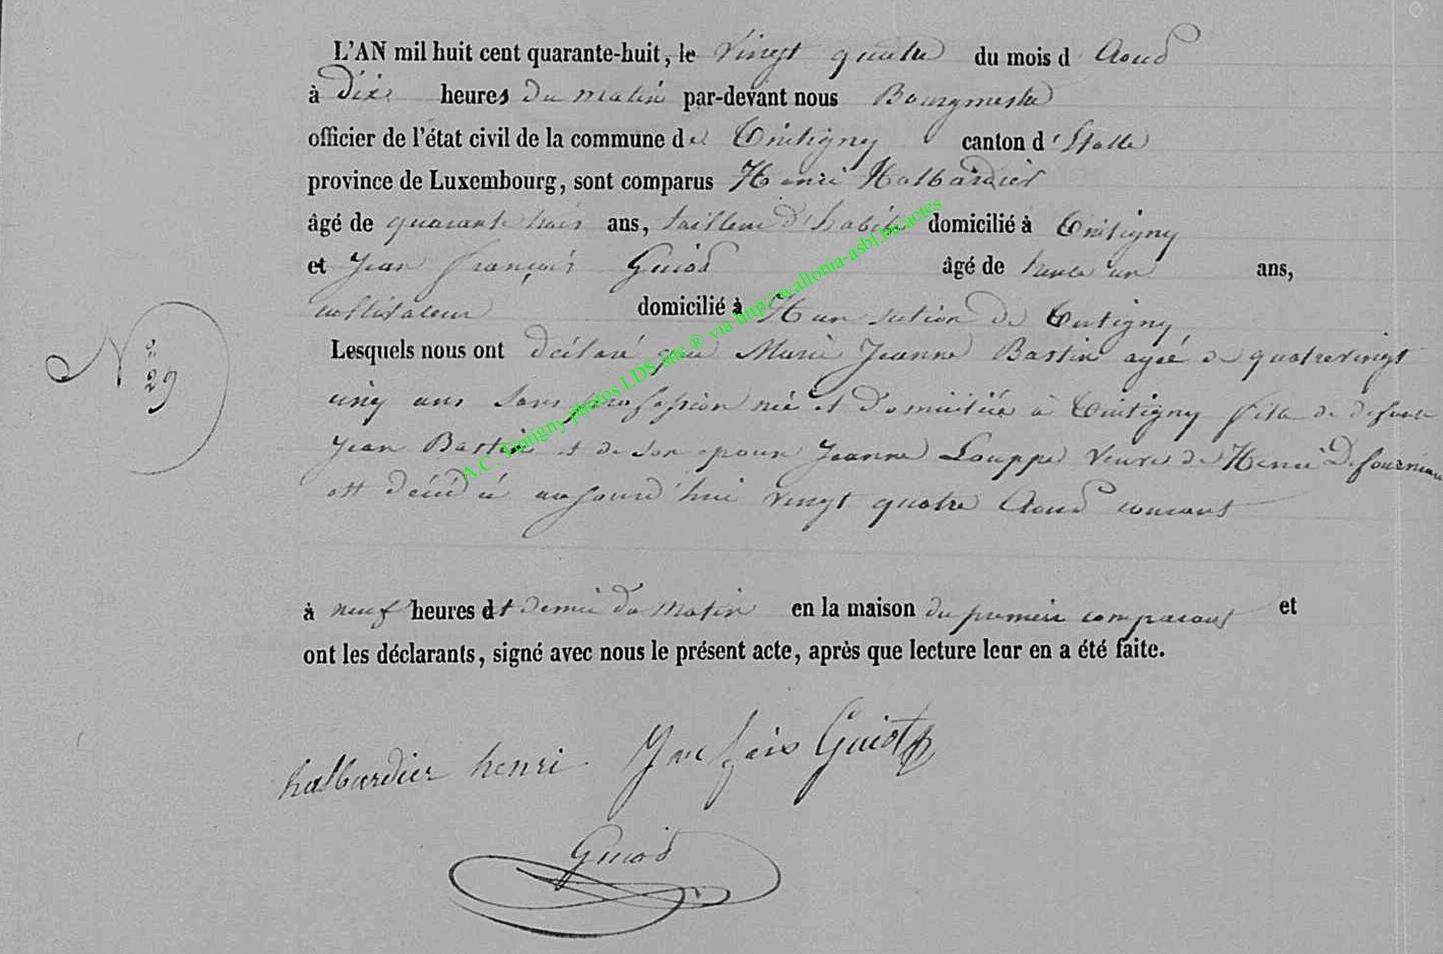 L'AN mil huit cent quarante-huit, le vingt quatre du mois d Aoud
à dix heures du matin par-devant nous Bourgmestre
officier de l'état civil de la commune de Tintigny canton d'Etalle
province de Luxembourg, sont comparus Henri Halbardier
âgé de quarante trois ans, tailleur d'habits domicilié à Tintigny
et Jean françois Guiod âgé de trente un ans,
cultivateur domicilié à Han section de Tintigny
N° 29
Lesquels nous ont déclaré que Marie Jeanne Bastin agée de quatrevingt
cinq ans sans profession née et domiciliée à Tintigny fille de defunt
Jean Bastin et de son epouse Jeanne Louppe veuve de Henri Defourneau
est décédée aujourd'hui vingt quatre Aoud courant
à neuf heures et demie du matin en la maison du premier comparant et
ont les déclarants, signé avec nous le présent acte, après que lecture leur en a été faite.
halbardier henri Jean fcois Guiot
Guiod
A.C. Tintigny photos LDS site ® via http://wallonia-asbl.be/actes